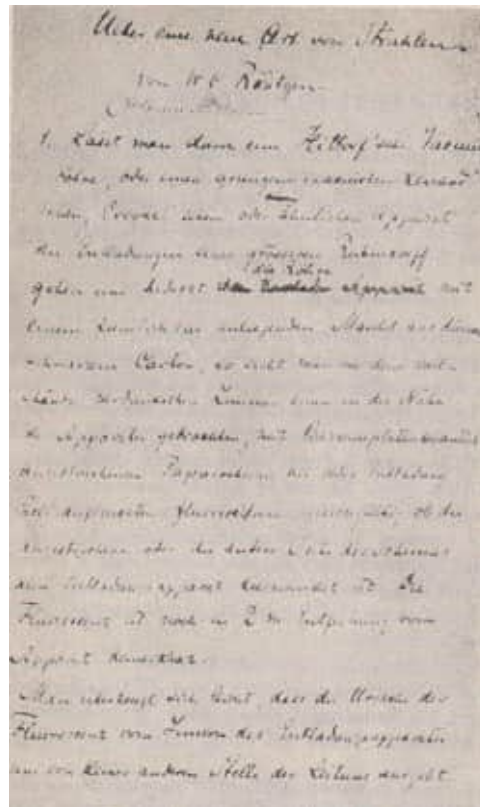 Ueber eine neue Art von Strahlen
von W. C. Röntgen
1. Lässt man durch eine Hittorf'sche Vacuum
röhre, oder einen genügend evacuirten Lenard'
schen, Crookes'schen oder ähnlichen Apparat
die Entladungen eines grösseren Ruhmkorff
die Röhre
gehen und bedeckt Apparat mit
einem ziemlich eng anliegenden Mantel aus dünnem
schwarzem Carton, so sieht man in dem voll-
ständig verdunkelten Zimmer einen in die Nähe
des Apparates gebrachten, mit Bariumplatincyanür
angestrichenen Papierschirm bei jeder Entladung
hell aufleuchten, fluoresciren, gleichgültig ob die
angestrichene oder die andere Seite des Schirmes
dem Entladungsapparat zugewendet ist. Die
Fluorescenz ist noch in 2 m Entfernung vom
Apparat bemerkbar.
Man überzeugt sich leicht, dass die Ursache der
Fluorescenz vom Innern des Entladungsapparates
und von keiner anderen Stelle der Leitung ausgeht